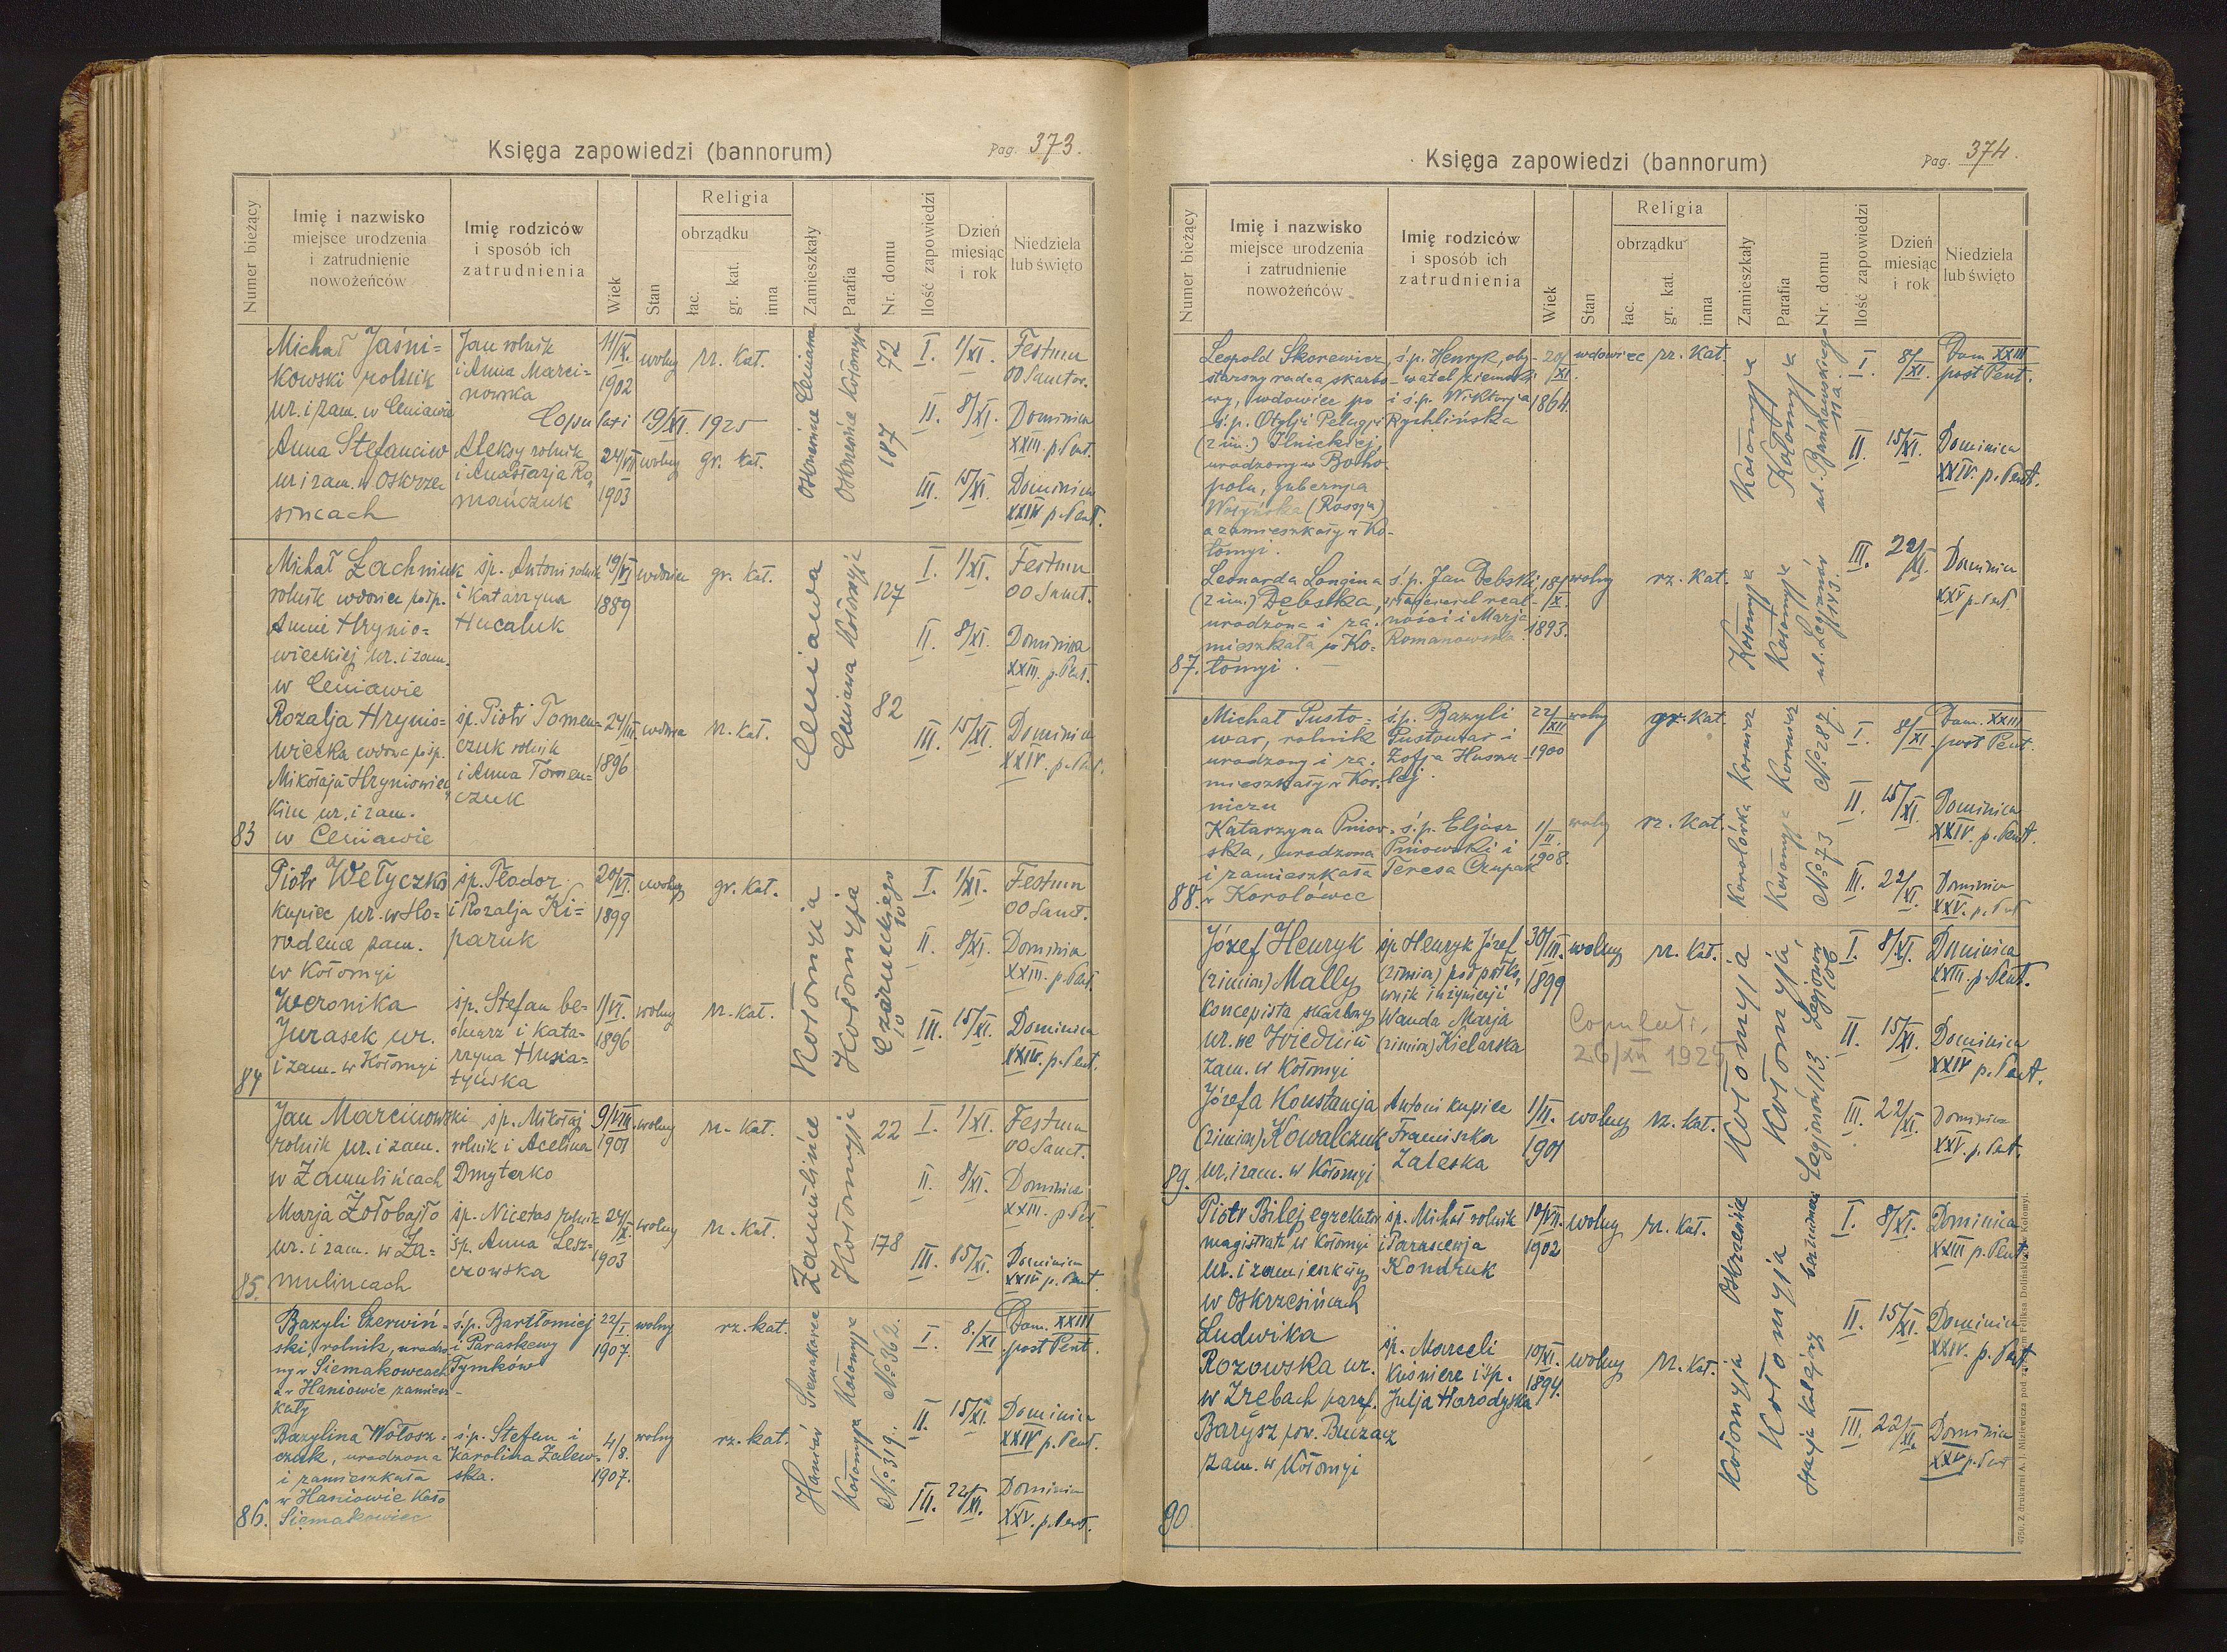 Księga zapowiedzi (bannorum)
Pag. 373.
Numer bieżący
Imię i nazwisko
miejsce urodzenia
i zatrudnienie
nowożeńców
Imię rodziców
i sposób ich
zatrudnienia
Wiek
Stan
Religia
obrządku
łac.
gr. kat.
inna
Zamieszkały
Parafia
Nr. domu
Ilość zapowiedzi
Dzień
miesiąc
i rok
Niedziela
lub święto
Michał Jaśni=
kowski rolnik
ur. i zam. w Ceniawie
Jan rolnik
i Anna Marci=
nowska
11/IX.
1902
wolny
rz. kat.
72
Copulati 19/XI. 1925
Anna Stefanciw
ur i zam. w Oskrze
sincach
Aleksy rolnik
i Anastazja Ro
mańczuk
24/VII
1903
wolny
gr. kat.
187
I. 1/XI. Festum
OO Sanctor.
II. 8/XI. Dominica
XXIII. p. Pent.
III. 15/XI. Dominica
XXIV p. Pent.
83
Michał Lachniuk
rolnik wdowiec po śp.
Annie Hrynio=
wieckiej ur. i zam.
w Ceniawie
śp. Antoni rolnik
i Katarzyna
Hucaluk
19/VI
1889
wdowiec
gr. kat.
127
Rozalja Hrynio=
wiecka wdowa po śp.
Mikołaju Hryniowiec
kim ur. i zam.
w Ceniawie
śp. Piotr Tomen=
czuk rolnik
i Anna Tomen=
czuk
24/III.
1896
wdowa
rz. kat.
82
Ceniawa
Ceniawa Kołomyja
I. 1/XI. Festum
OO Sanct.
II. 8/XI. Dominica
XXIII. p. Pent.
III. 15/XI. Dominica
XXIV. p. Pent.
84
Piotr Wełyczko
kupiec ur. w Ho=
rodence zam.
w Kołomyi
śp. Teodor
i Rozalja Ki=
paruk
20/VI.
1899
wolny
gr. kat.
Weronika
Jurasek ur.
i zam. w Kołomyi
śp. Stefan be=
dnarz i Kata=
rzyna Husia=
tyńska
1/VI.
1896
wolny
rz. kat.
Kołomyja
Kołomyja
Czarneckiego
10
10
I. 1/XI. Festum
OO Sanct.
II. 8/XI. Dominica
XXIII. p. Pent.
III. 15/XI. Dominica
XXIV. p. Pent.
85.
Jan Marcinowski
rolnik ur. i zam.
w Zamulińcach
śp. Mikołaj
rolnik i Acelina
Dmyterko
9/VIII.
1901
wolny
rz. kat.
22
Marja Żołobajło
ur. i zam. w Za=
mulincach
śp. Nicetas rolnik
śp. Anna Lesz=
czowska
24/IX.
1903
wolny
rz. kat.
178
Zamulińce
Kołomyja
I. 1/XI. Festum
OO Sanct.
II. 8/XI. Dominica
XXIII. p. Pent.
III. 15/XI. Dominica
XXIV p. Pent
86.
Bazyli Czerwiń=
ski, rolnik, urodzo
ny w Siemakowcach
a w Haniowie zamiesz=
kały
ś.p. Bartłomiej
i Paraskewy
Tymków
22/I.
1907.
wolny
rz. kat.
Bazylina Wołosz=
czuk, urodzona
i zamieszkała
w Haniowie koło
Siemakowiec
ś.p. Stefan i
Karolina Zalew=
ska.
4/8.
1907.
wolny
rz. kat.
Haniów Siemakowce
Kołomyja Kołomyja
No. 319. No. 362.
I. 8./XI Dom. XXIII
post Pent.
II. 15/XI. Dominica
XXIV p. Pent.
III. 22/XI. Dominica
XXV. p. Pent.
Księga zapowiedzi (bannorum)
Pag. 374.
Numer bieżący
Imię i nazwisko
miejsce urodzenia
i zatrudnienie
nowożeńców
Imię rodziców
i sposób ich
zatrudnienia
Wiek
Stan
Religia
obrządku
łac.
gr. kat.
inna
Zamieszkały
Parafia
Nr. domu
Ilość zapowiedzi
Dzień
miesiąc
i rok
Niedziela
lub święto
87.
Leopold Skorewicz
starszy radca skarbo-
wy, wdowiec po
ś.p. Otylji Pelagji
(2 im.) Ilnickiej,
urodzony w Boho-
polu, gubernja
Wołyńska (Rossja)
a zamieszkały w Ko-
łomyi.
ś.p. Henryk, oby-
watel ziemski
i ś.p. Wiktorja
Rychlińska
20/XI.
1864.
wdowiec
rz. kat.
Leonarda Longina
(2 im.) Dębska,
urodzona i za-
mieszkała w Ko-
łomyi.
ś.p. Jan Dębski
właściciel real-
ności i Marja
Romanowska
18/X.
1893.
wolny
rz. kat.
Kołomyja Kołomyja
Kołomyja Kołomyja
I. 8/XI. Dom XXIII
post Pent.
II. 15/XI. Dominica
XXIV. p. Pent.
III. 22/XI. Dominica
XXV p. Pent.
88.
Michał Pusto=
war, rolnik
urodzony i za-
mieszkały w Kor-
niczu
ś.p. Bazyli
Pustowar i
Zofja Husnu-
lej.
22/XII
1900
wolny
gr. kat.
Katarzyna Pniow-
ska, urodzona
i zamieszkała
w Korolówce
ś.p. Eljasz
Pniowski i
Teresa Czupak
1/II.
1908.
wolny
rz. kat.
Korolówka Kornicz
Kołomyja Kornicz
No. 73 No. 287.
I. 8/XI. Dom. XXIII
post Pent.
II. 15/XI. Dominica
XXIV. p. Pent.
III. 22/XI. Dominica
XXV. p. Pent
89.
Józef Henryk
(2 imion) Mally
koncepista skarbowy
ur. we Wiedniu
zam. w Kołomyi
śp Henryk Józef
(2 imion) podpułko
wnik inżynierji
Wanda Marja
(2 imion) Kielarska
30/III.
1899
wolny
rz. kat.
Copulati.
26/XII 1925
Józefa Konstancja
(2 imion) Kowalczuk
ur. i zam. w Kołomyi
Antoni kupiec
Franciszka
Zaleska
1/II.
1901
wolny
rz. kat.
Kołomyja
Kołomyja
Legjonów 113. Legjonów
106
I. 8/XI. Dominica
XXIII. p. Pent.
II. 15/XI. Dominica
XXIV p. Pent.
III. 22/XI. Dominica
XXV. p. Pent.
90.
Piotr Bilej egzekutor
magistratu w Kołomyi
ur. i zamieszkały
w Oskrzesińcach
śp. Michał rolnik
i Parascewja
Kondruk
12/VII.
1902
wolny
rz. kat.
Ludwika
Rozowska ur.
w Zrebach paraf.
Barysz pow. Buczacz
zam. w Kołomyi
śp. Marceli
kuśnierz i śp.
Julja Harodyska
10/XI.
1894.
wolny
rz. kat.
Kołomyja
Kołomyja
I. 8/XI. Dominica
XXIII p. Pent.
II. 15/XI. Dominica
XXIV. p. Pent.
III. 22/XI. Dominica
XXV p. Pent